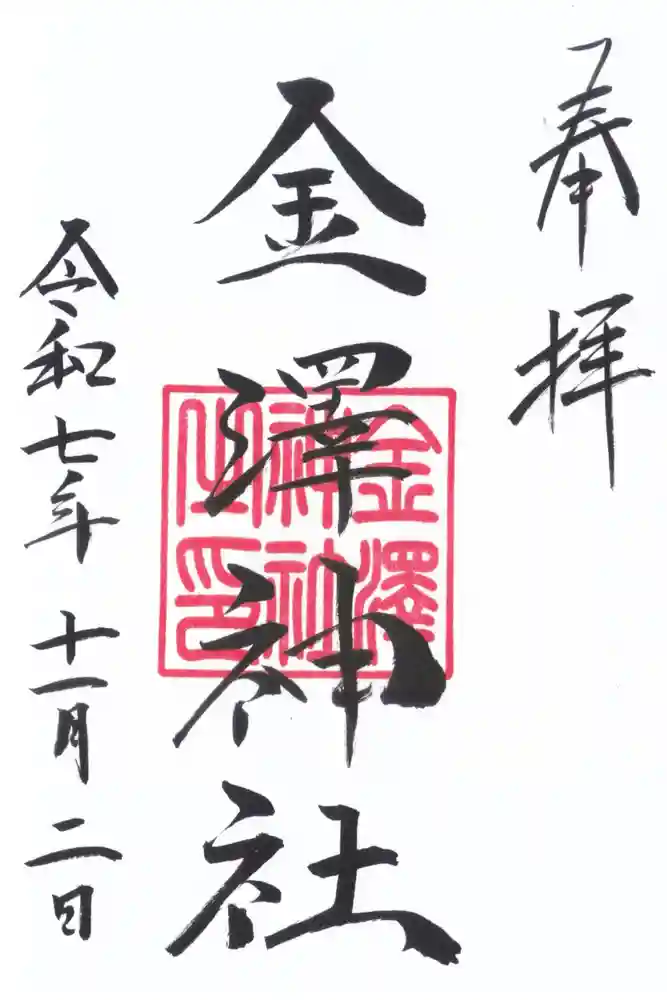 奉拝
金澤神社
金澤神社之印
令和七年十一月二日